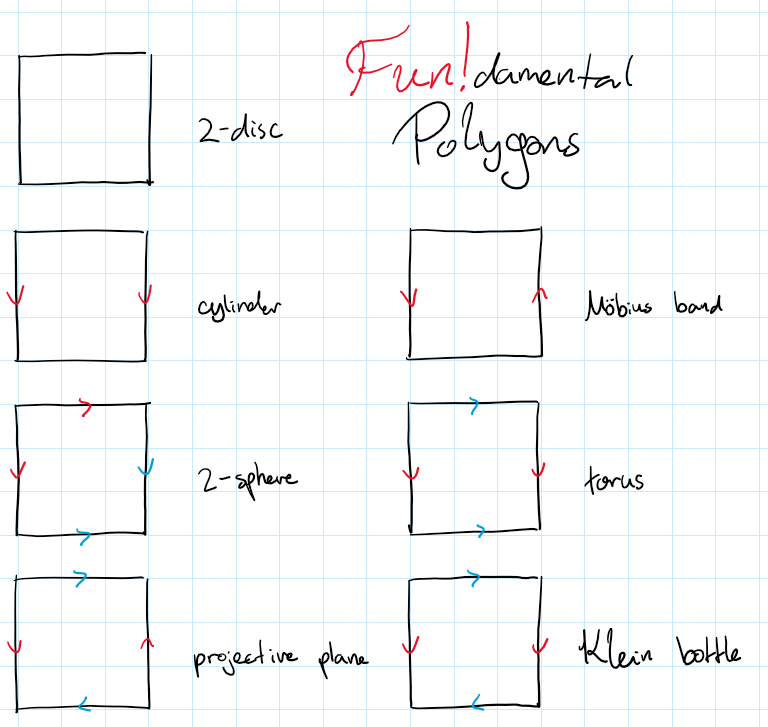 Fun!damental
Polygons
2-disc
cylinder
Möbius band
2-sphere
torus
projective plane
Klein bottle